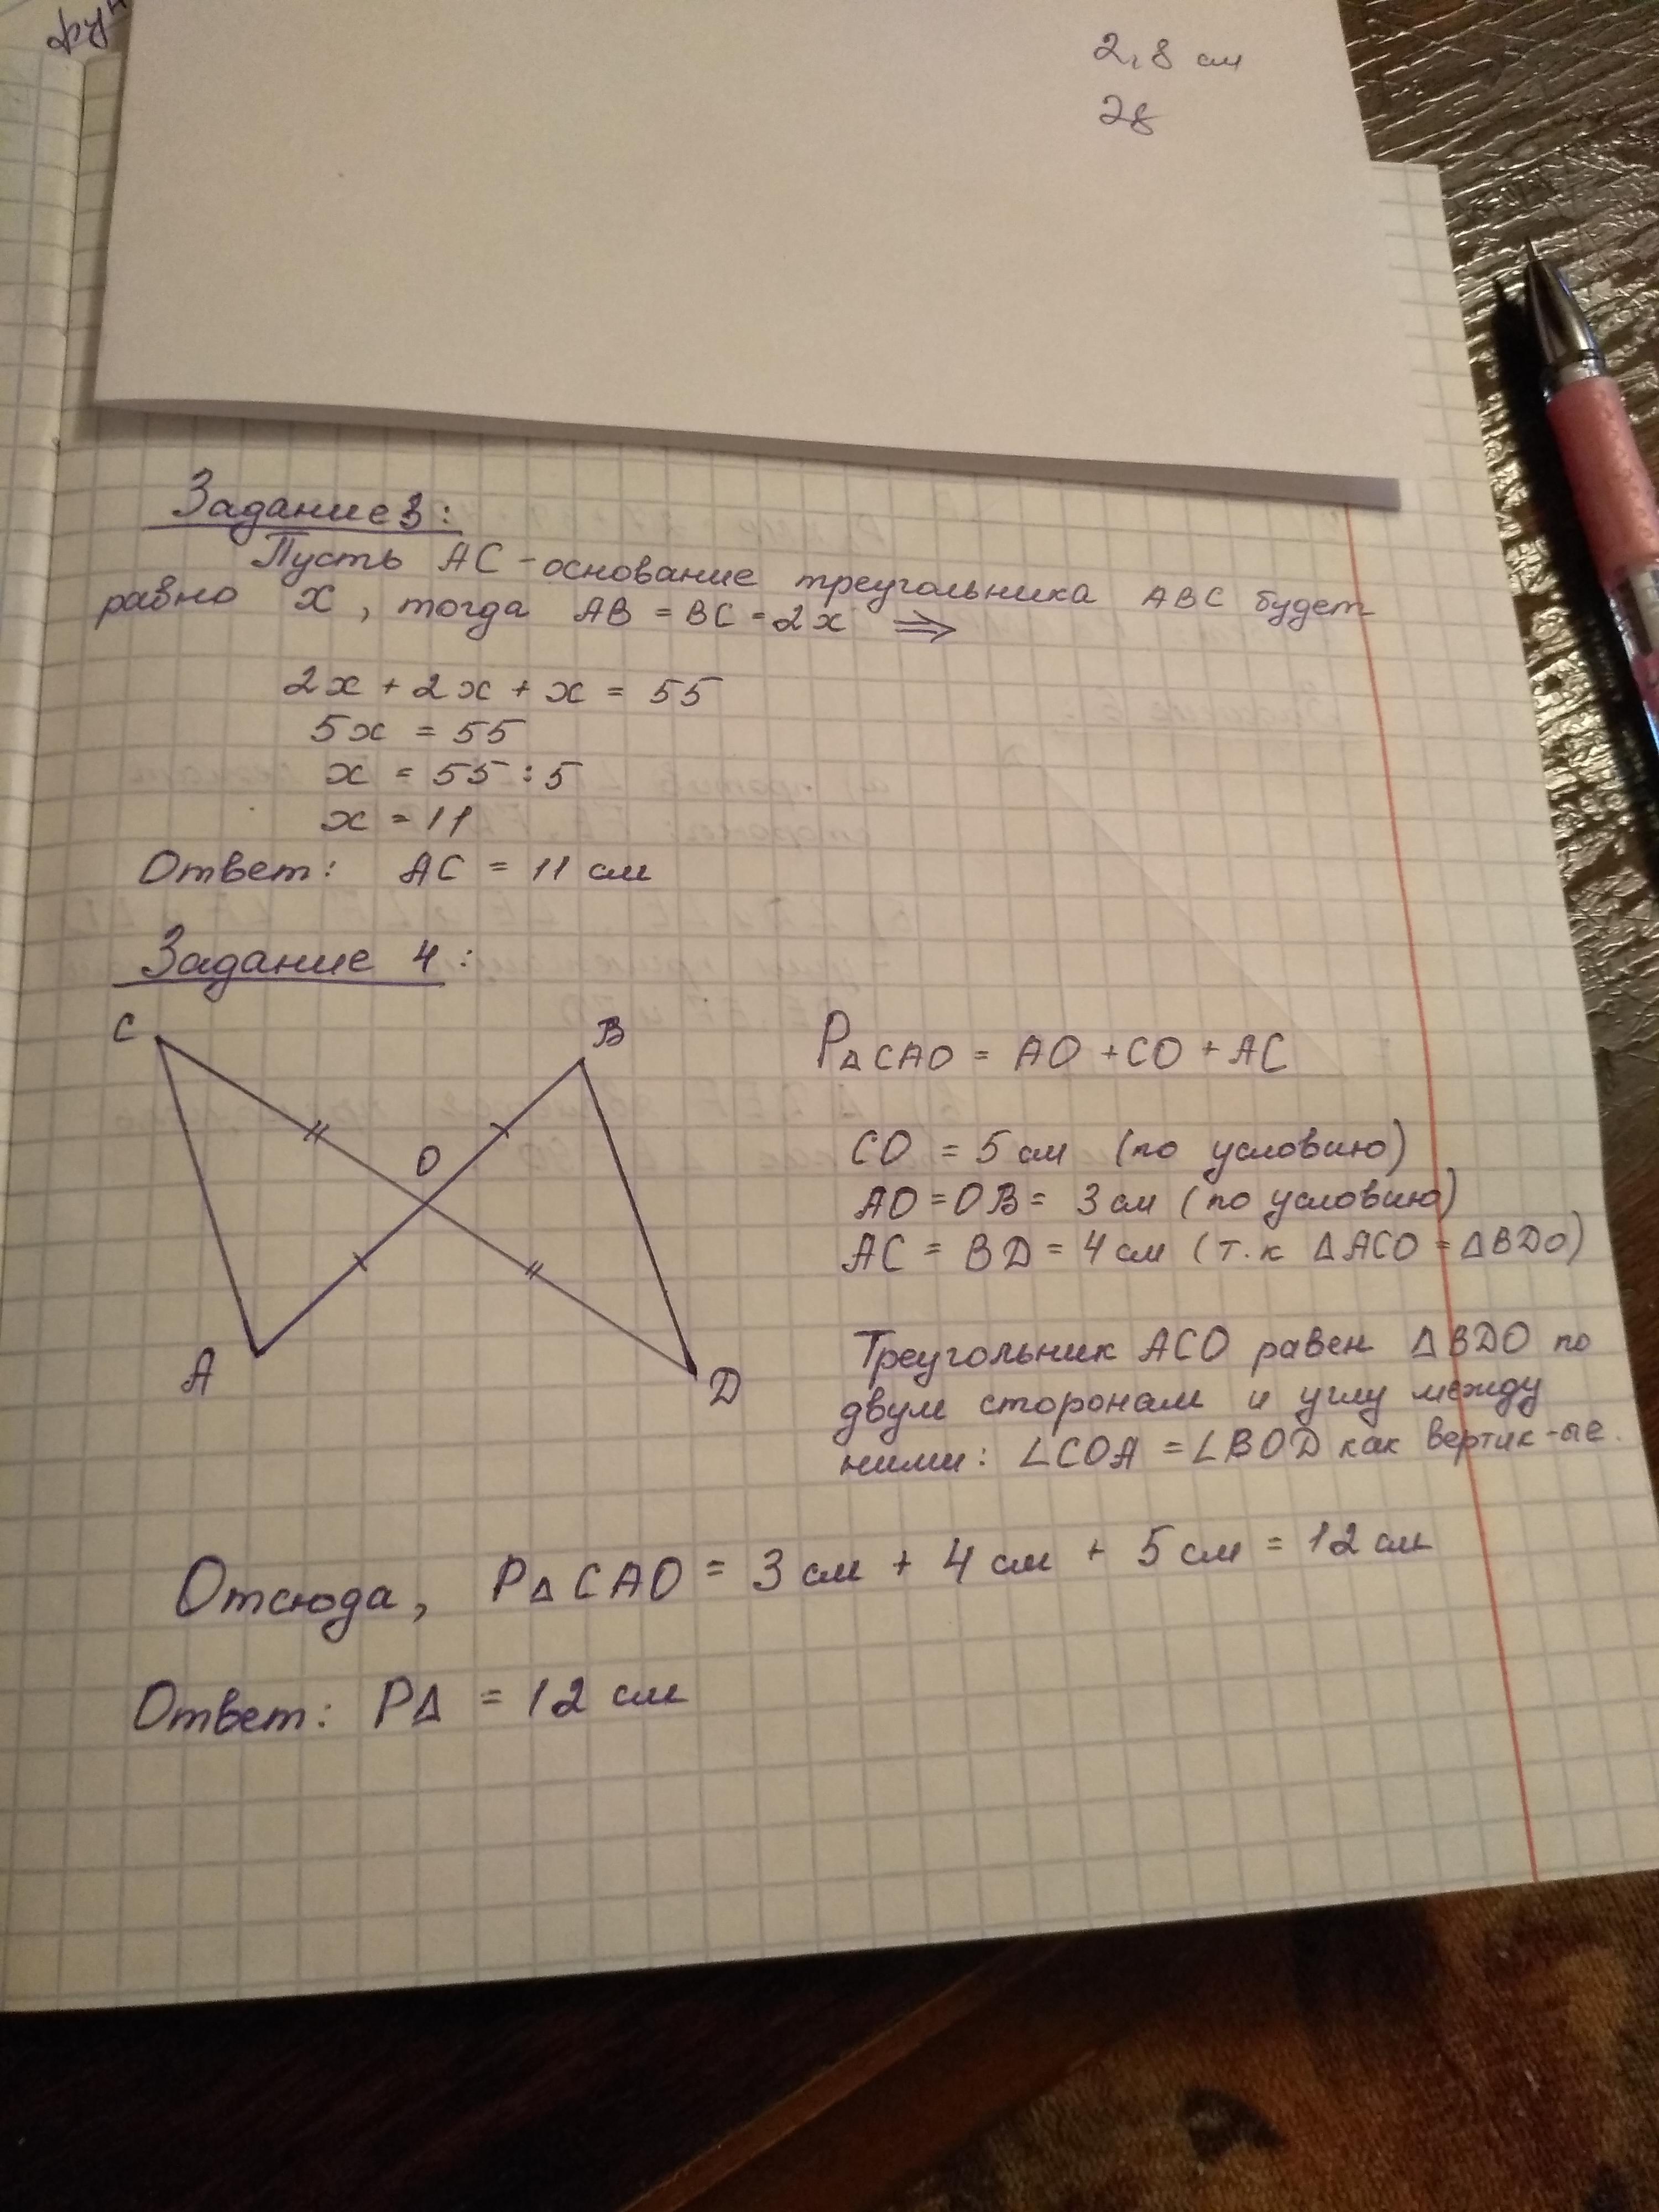 2,8 см
28
Задание 3:
Пусть AC - основание треугольника ABC будет
равно x, тогда AB = BC = 2x ⇒
2x + 2x + x = 55
5x = 55
x = 55 : 5
x = 11
Ответ: AC = 11 см
Задание 4:
C
B
O
A
D
P△CAO = AO + CO + AC
CO = 5 см (по условию)
AO = OB = 3 см (по условию)
AC = BD = 4 см (т.к △ACO = △BDO)
Треугольник ACO равен △BDO по
двум сторонам и углу между
ними: ∠COA = ∠BOD как вертик-ые.
Отсюда, P△CAO = 3 см + 4 см + 5 см = 12 см
Ответ: P△ = 12 см